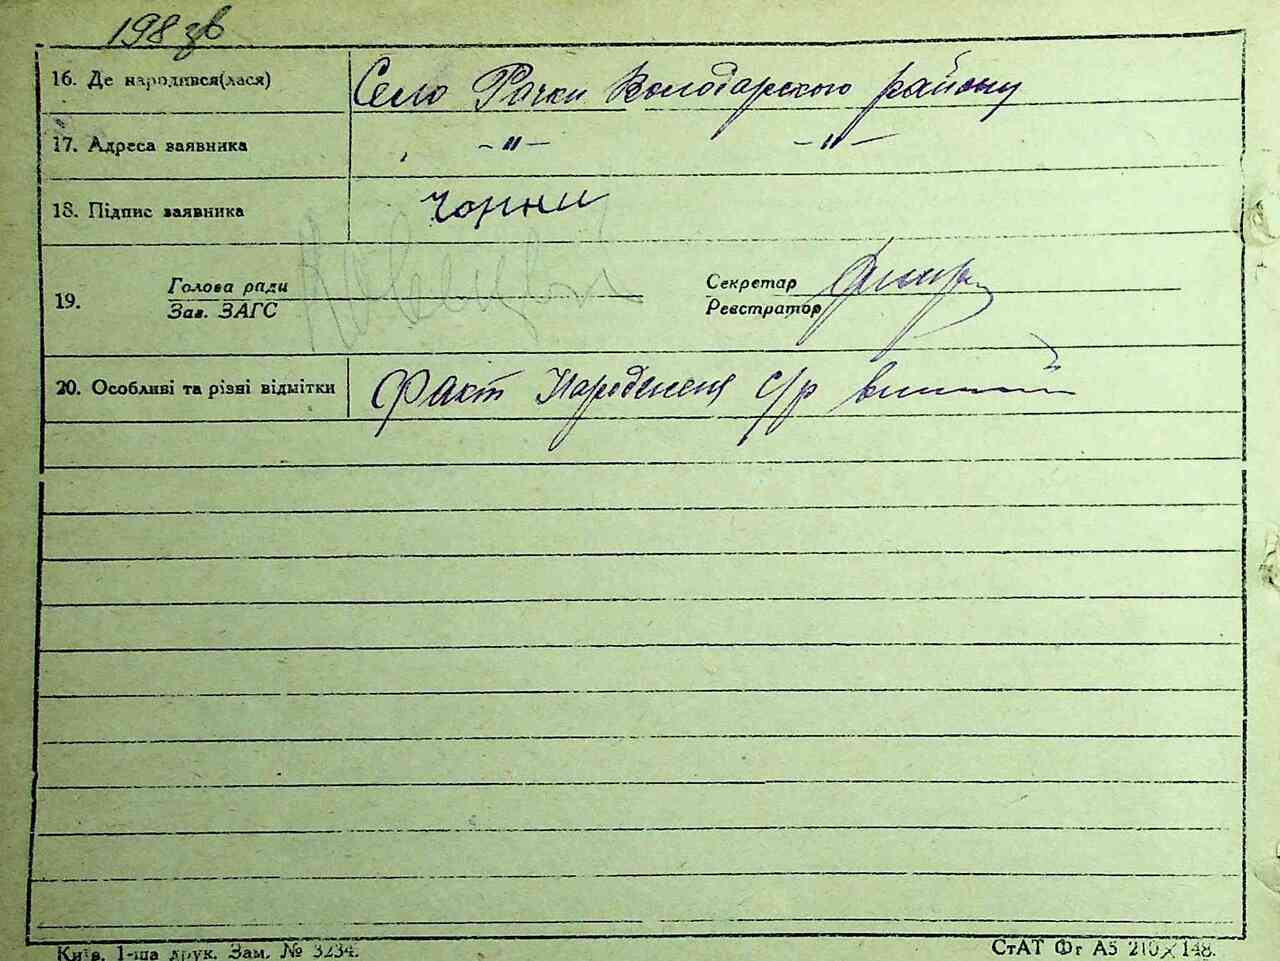 198 зв
16. Де народився(лася) Село Рачки Володарского району
17. Адреса заявника -"- -"-
18. Підпис заявника Чорни
19. Голова ради Секретар
Зав. ЗАГС Реєстратор
20. Особливі та різні відмітки Факт Нарodження с/р
Київ. 1-ша друк. Зам. № 3234.
СтАТ Фг А5 210×148.